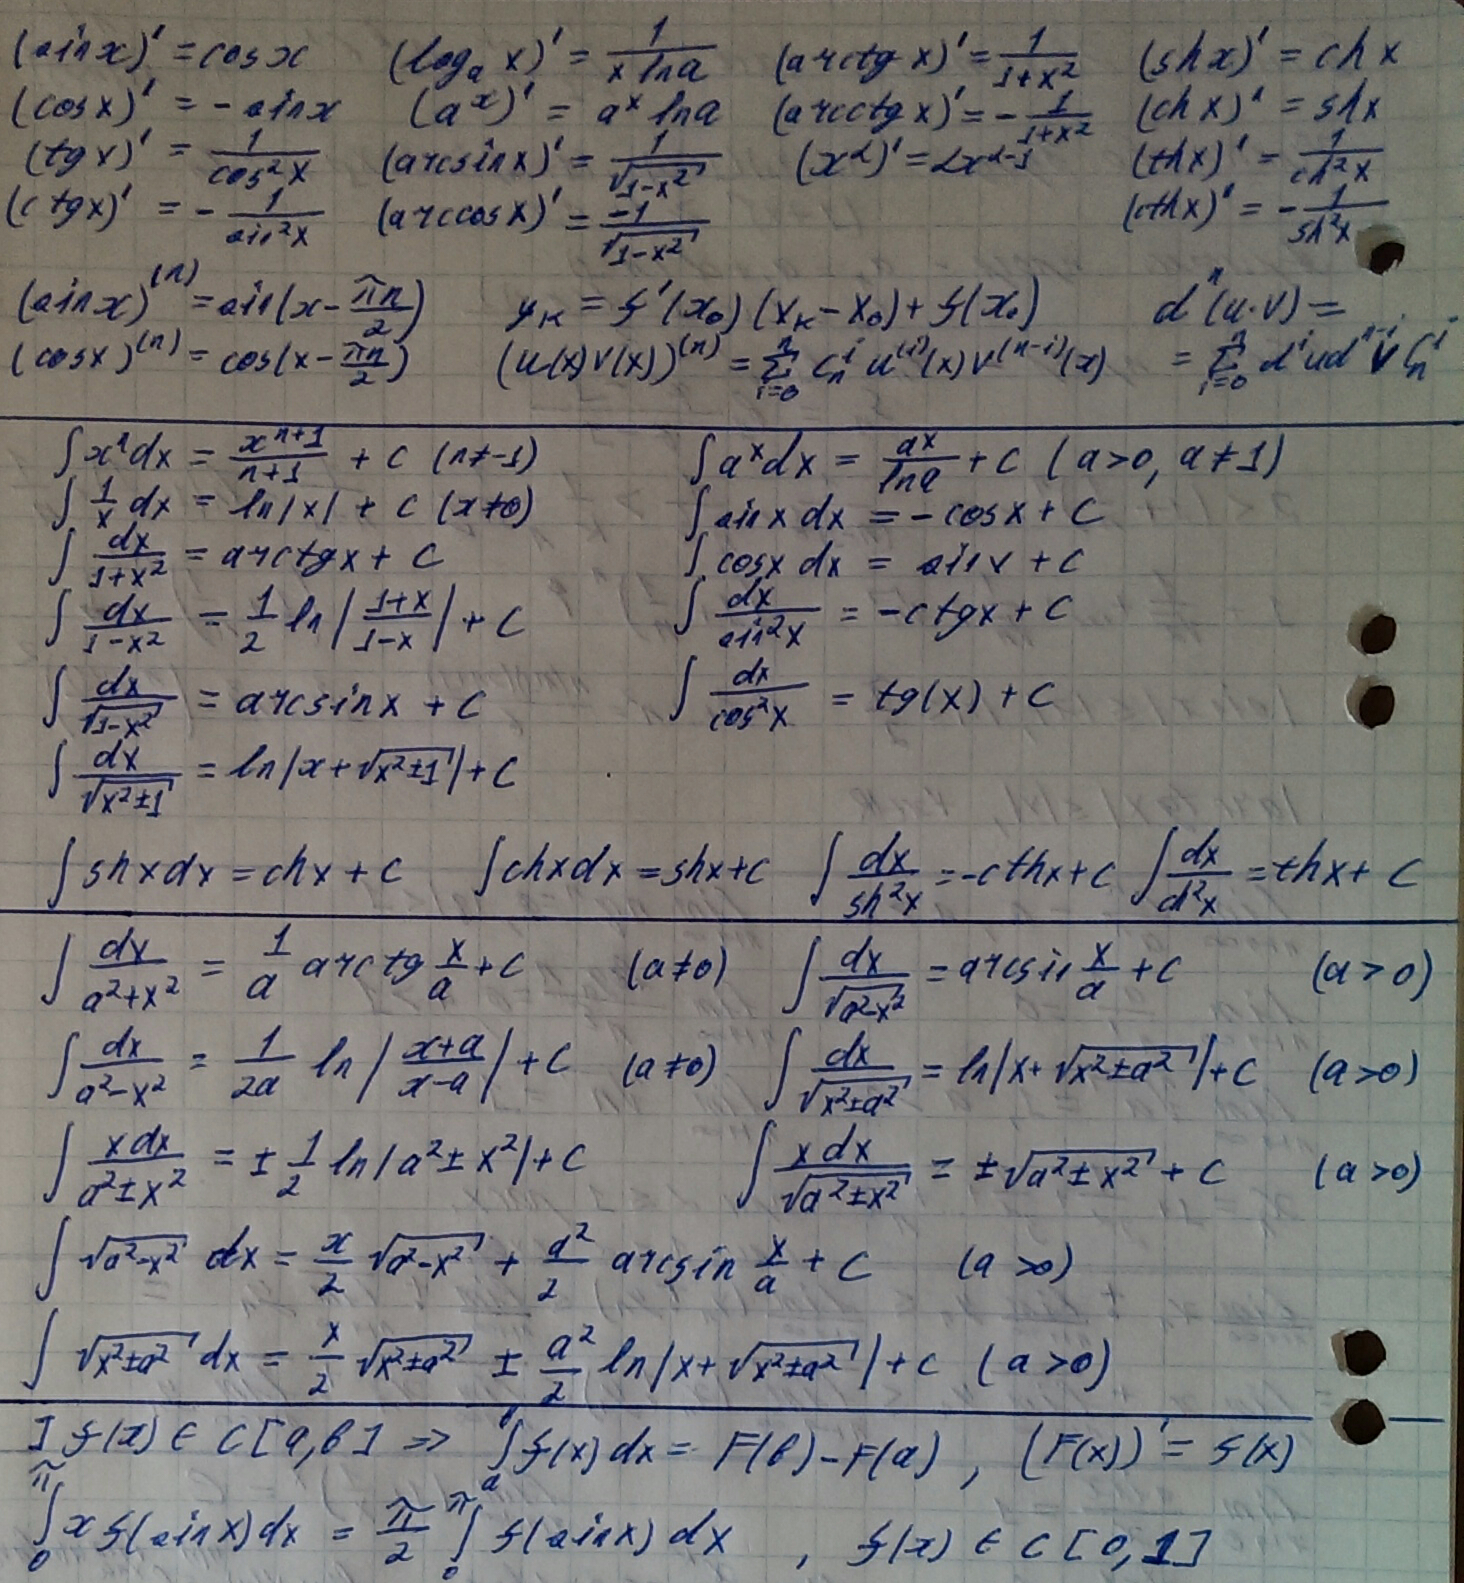 (sin x)' = cos x   (log_a x)' = 1/(x ln a)   (arctg x)' = 1/(1+x²)   (sh x)' = ch x
(cos x)' = - sin x   (a^x)' = a^x ln a   (arcctg x)' = - 1/(1+x²)   (ch x)' = sh x
(tg x)' = 1/cos²x   (arcsin x)' = 1/√(1-x²)   (x^α)' = αx^(α-1)   (th x)' = 1/ch²x
(ctg x)' = - 1/sin²x   (arccos x)' = -1/√(1-x²)   (cth x)' = - 1/sh²x
(sin x)^(n) = sin(x - πn/2)   y_к = f'(x₀)(x_к - x₀) + f(x₀)   d^n(u·v) =
(cos x)^(n) = cos(x - πn/2)   (u(x)v(x))^(n) = Σ_{i=0}^{n} C_n^i u^(i)(x) v^(n-i)(x)   = Σ_{i=0}^{n} d^i u d^{n-i} v C_n^i
∫ x^n dx = x^(n+1)/(n+1) + C (n≠-1)   ∫ a^x dx = a^x/ln a + C (a>0, a≠1)
∫ 1/x dx = ln|x| + C (x≠0)   ∫ sin x dx = - cos x + C
∫ dx/(1+x²) = arctg x + C   ∫ cos x dx = sin x + C
∫ dx/(1-x²) = 1/2 ln|(1+x)/(1-x)| + C   ∫ dx/sin²x = -ctg x + C
∫ dx/√(1-x²) = arcsin x + C   ∫ dx/cos²x = tg(x) + C
∫ dx/√(x²±1) = ln|x + √(x²±1)| + C
∫ sh x dx = ch x + C   ∫ ch x dx = sh x + C   ∫ dx/sh²x = -cth x + C   ∫ dx/ch²x = th x + C
∫ dx/(a²+x²) = 1/a arctg x/a + C (a≠0)   ∫ dx/√(a²-x²) = arcsin x/a + C (a>0)
∫ dx/(a²-x²) = 1/(2a) ln|(x+a)/(x-a)| + C (a≠0)   ∫ dx/√(x²±a²) = ln|x + √(x²±a²)| + C (a>0)
∫ x dx/(a²±x²) = ± 1/2 ln|a²±x²| + C   ∫ x dx/√(a²±x²) = ±√(a²±x²) + C (a>0)
∫ √(a²-x²) dx = x/2 √(a²-x²) + a²/2 arcsin x/a + C (a>0)
∫ √(x²±a²) dx = x/2 √(x²±a²) ± a²/2 ln|x + √(x²±a²)| + C (a>0)
] f(x) ∈ C[a,b] => ∫_a^b f(x) dx = F(b) - F(a), (F(x))' = f(x)
∫_0^π x f(sin x) dx = π/2 ∫_0^π f(sin x) dx, f(x) ∈ C[0,1]